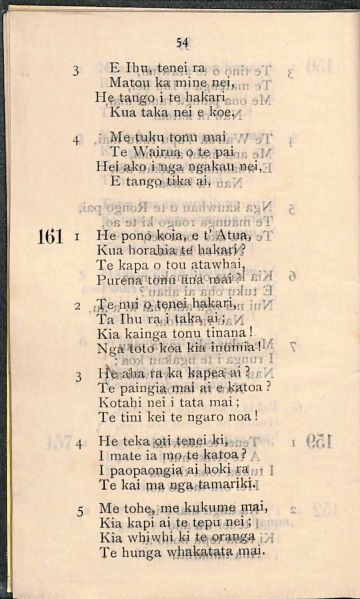 54
3 E Ihu, tenei ra
Matou ka mine nei,
He tango i te hakari
Kua taka nei e koe.
4 Me tuku tonu mai
Te Wairua o te pai
Hei ako i nga ngakau nei,
E tango tika ai.
161 1 He pono koia, e t' Atua,
Kua horahia te hakari?
Te kapa o tou atawhai,
Purena tonu ana mai?
2 Te nui o tenei hakari,
Ta Ihu ra i taka ai;
Kia kainga tonu tinana!
Nga toto koa kia inumia!
3 He aha ra ka kapea ai?
Te paingia mai ai e katoa?
Kotahi nei i tata mai;
Te tini kei te ngaro noa!
4 He teka oti tenei ki,
I mate ia mo te katoa?
I paopaongia ai hoki ra
Te kai ma nga tamariki.
5 Me tohe, me kukume mai,
Kia kapi ai te tepu nei;
Kia whiwhi ki te oranga
Te hunga whakatata mai.